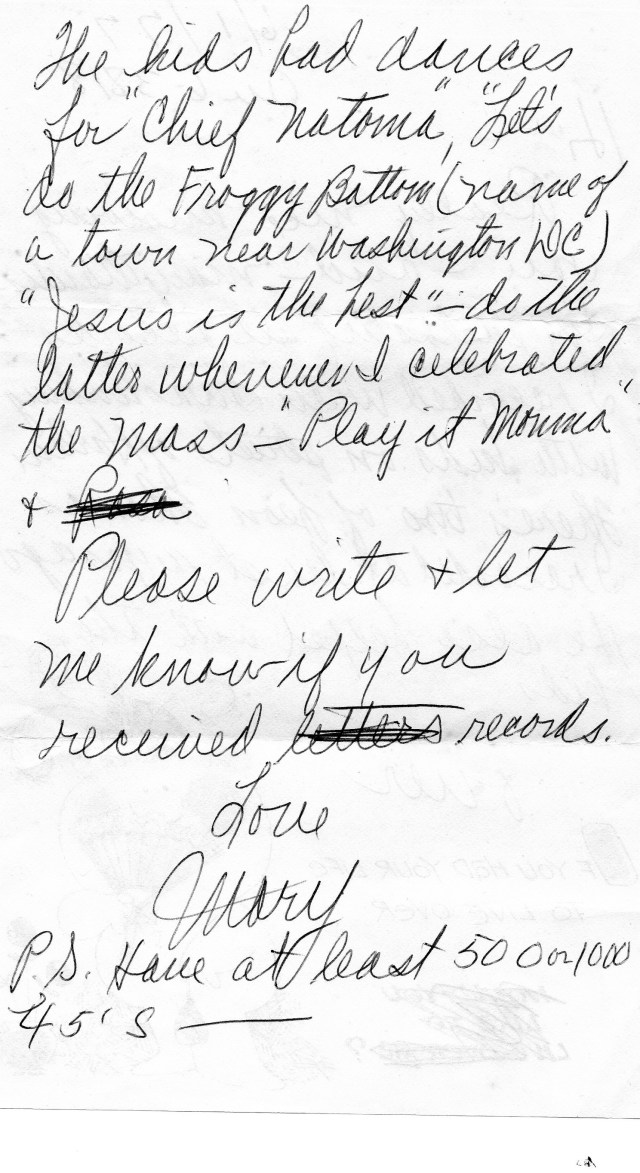 The kids had dances
for "Chief Natoma", "Let's
do the Froggy Bottom (name of
a town near Washington DC)
"Jesus is the best" – do the
latter whenever I celebrated
the Mass – "Play it Momma"
+
Please write + let
me know if you
received letters records.
Love
Mary
P.S. Have at least 500 or 1000
45's —